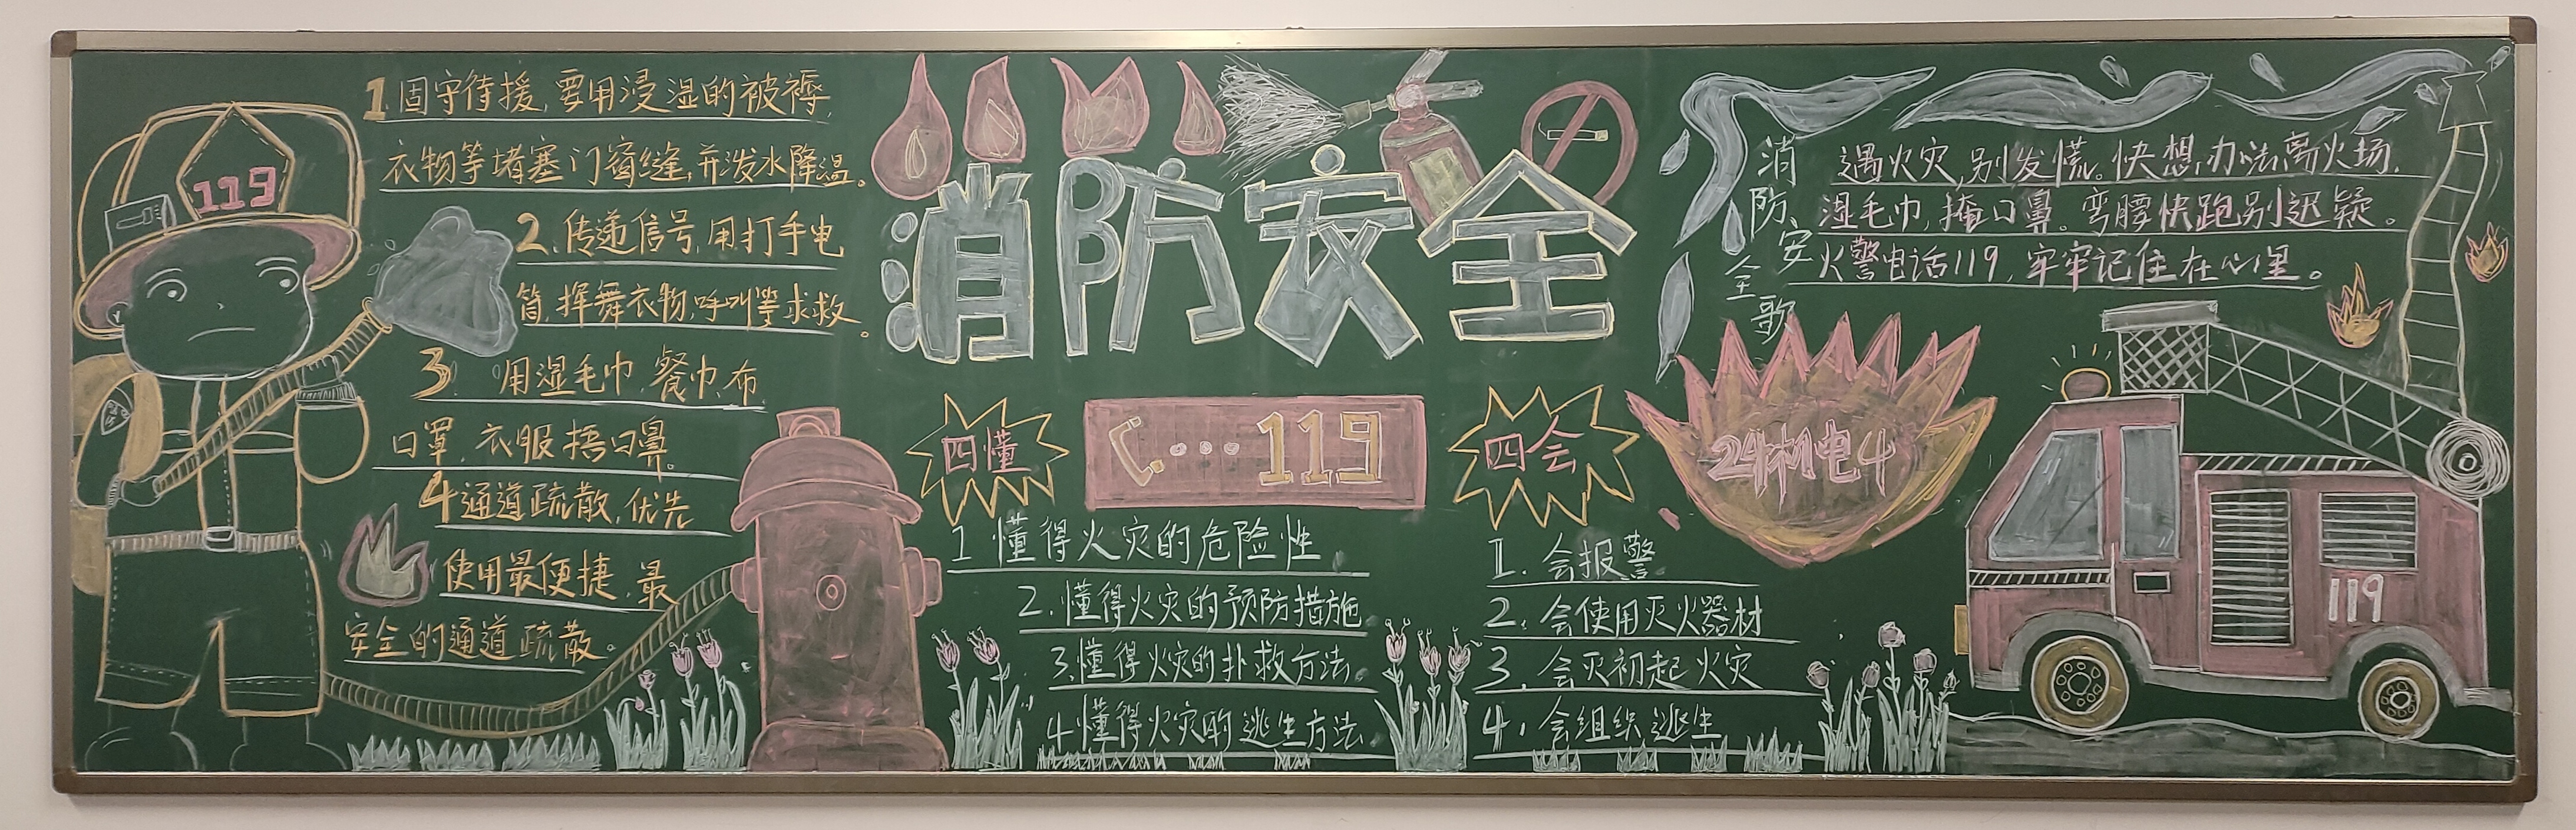 119
1.固守待援,要用浸湿的被褥,
衣物等堵塞门窗缝,并泼水降温。
2.传递信号,用打手电
筒,挥舞衣物,呼叫等求救。
3.用湿毛巾,餐巾,布
口罩,衣服捂口鼻。
4通道疏散,优先
使用最便捷,最
安全的通道疏散。
消防安全
四懂
119
四会
1懂得火灾的危险性
2.懂得火灾的预防措施
3.懂得火灾的扑救方法。
4懂得火灾的逃生方法。
1.会报警
2.会使用灭火器材
3.会灭初起火灾
4.会组织逃生
24机电4
消防安全歌
遇火灾,别发慌。快想办法离火场.
湿毛巾,掩口鼻。弯腰快跑别迟疑。
火警电话119,牢牢记住在心里。
119